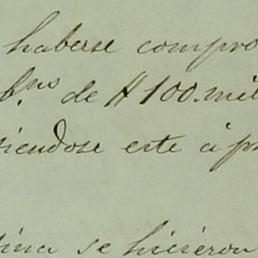 haberse compro
de $100.mil
iendose este á p
ina se hicieron